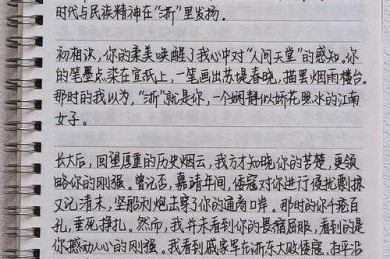 时代与民族精神在“浙”里发扬。
初相识，你的柔美唤醒了我心中对“人间天堂”的感知。你
的笔墨点染在宣纸上，一笔画出苏堤春晓，描罢烟雨楼台。
那时的我以为，“浙”就是你，一个娴静似娇花照水的江南
女子。
长大后，回望厚重的历史烟云，我方才知晓你的苦楚，更领
略你的刚强。曾记否，嘉靖年间，倭寇对你进行侵扰剽掠
又记清末，坚船利炮击穿了你的通商口岸。那时的你千疮百
孔，垂死挣扎。然而，我并未看到你的畏缩屈服，看到的是
你撼动人心的刚强。我看到戚家军在浙东大败倭寇，扫平沿